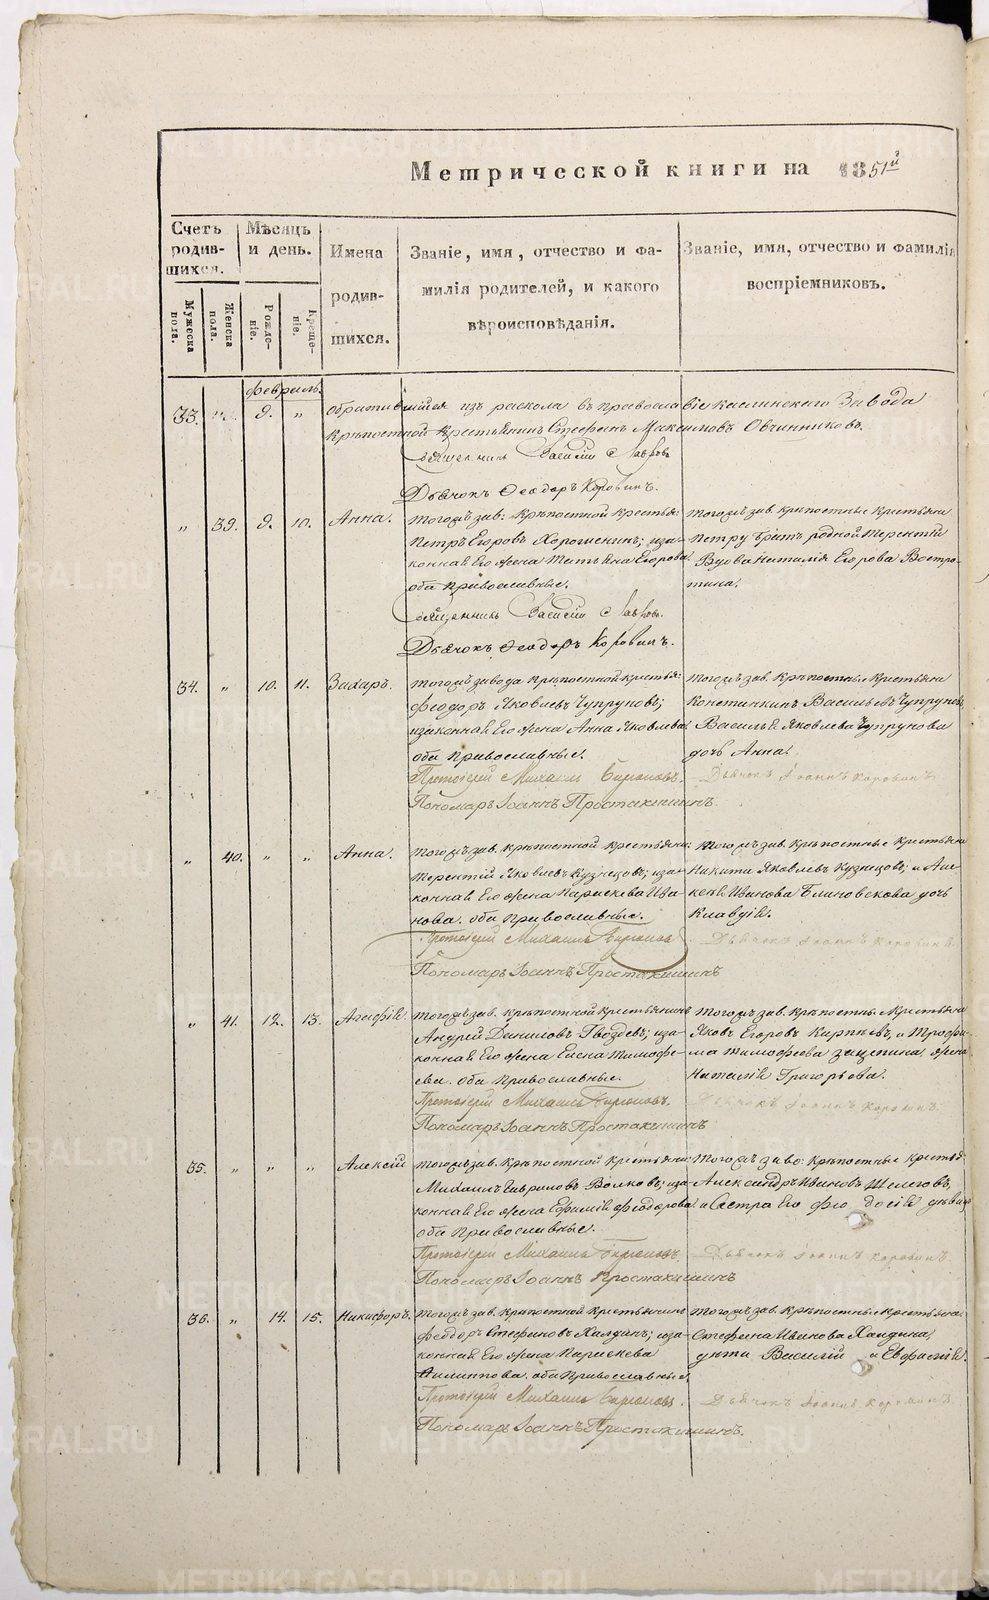 Метрической книги на 1851й
Счетъ родив-шихся.
Мѣсяцъ и день.
Имена родив-шихся.
Званіе, имя, отчество и фа-
милія родителей, и какого
вѣроисповѣданія.
Званіе, имя, отчество и фамилія
воспріемниковъ.
Мужеска пола.
Женска пола.
Рожде-ніе.
Креще-ніе.
Февраль.
33. „ 9. „ Обратившійся изъ раскола въ православіе Каслинскаго Завода
крѣпостной крестьянинъ Стефанъ Максимовъ Овчинниковъ.
Священникъ Василій Лавровъ
Дьячокъ Феодоръ Коровинъ.
„ 39. 9. 10. Анна.
Тогожъ зав: крѣпостной крестья:
Петръ Егоровъ Хорошенинъ; иза-
конная его жена Татьяна Егорова
оба православные.
Тогожъ зав. крѣпостные крестьяна
Петру братъ родной Терентій
Вдова Наталія Егорова Востро-
тина.
Священникъ Василій Лавровъ.
Дьячокъ Феодоръ Коровинъ.
34. „ 10. 11. Захаръ.
Тогожъ завода крѣпостной крестья:
Феодоръ Яковлевъ Чупруновъ;
изаконная его жена Анна Яковлева
оба православные.
Тогожъ зав. крѣпостные крестьяна
Константинъ Васильевъ Чупруновъ,
Василья Яковлева Чупрунова
дочь Анна.
Протоіерей Михаилъ Бирюковъ. Дьячокъ Іоаннъ Коровинъ.
Пономарь Іоаннъ Простакишинъ.
„ 40. „ „ Анна.
Тогожъ зав. крѣпостной крестьяни:
Терентій Яковлевъ Кузнецовъ; иза-
конная его жена Параскева Ива-
нова. оба православные.
Тогожъ зав. крѣпостные крестьяна
Никита Яковлевъ Кузнецовъ; и Але-
ксѣя Иванова Блиновскова дочь
Клавдія.
Протоіерей Михаилъ Бирюковъ. Дьячокъ Іоаннъ Коровинъ.
Пономарь Іоаннъ Простакишинъ
„ 41. 12. 13. Агафія.
Тогожъ зав. крѣпостной крестьянинъ
Андрей Даниловъ Гвоздевъ; иза-
конная его жена Елена Тимофе-
ева. оба православные.
Тогожъ зав. крѣпостные крестьяна
Яковъ Егоровъ Карпѣевъ, и Трофи-
ма Тимофеева Зацепина жена
Наталія Григорьева.
Протоіерей Михаилъ Бирюковъ. Дьячокъ Іоаннъ Коровинъ.
Пономарь Іоаннъ Простакишинъ
35. „ „ „ Алексій
Тогожъ зав. крѣпостной крестьяни:
Михаилъ Гавриловъ Волковъ; иза-
конная его жена Ефимія Феодорова
оба православные.
Тогожъ заво: крѣпостные крестья:
Александръ Ивановъ Щелеговъ,
и Сестра его Фео досія дѣвица
Протоіерей Михаилъ Бирюковъ. Дьячокъ Іоаннъ Коровинъ.
Пономарь Іоаннъ Простакишинъ
36. „ 14. 15. Никифоръ.
Тогожъ зав. крѣпостной крестьянинъ
Феодоръ Стефановъ Халдинъ; иза-
конная его жена Параскева
Филиппова. оба православные.
Тогожъ зав. крѣпостные крестьяна:
Стефана Иванова Халдина,
дѣти Василій и Евфасія.
Протоіерей Михаилъ Бирюковъ. Дьячокъ Іоаннъ Коровинъ.
Пономарь Іоаннъ Простакишинъ.
METRIKI.GASO-URAL.RU